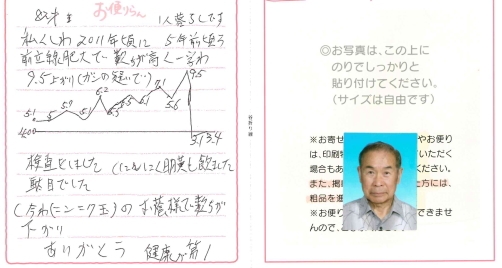 82才 お便りらん 1人暮らしです
私くしわ2011年頃に 5年前頃
前立線肥大で 数が高く一字わ
9.5上がり(ガンの疑いで)
9.5
5.1 5 5.7 6.2 5.5 7.1 5.6
3.13.4
検査をしました (にんにく卵黄も飲ました
駄目でした
(今わニンニク玉)のお蔭様で数が
下がり
ありがとう 健康が第1
谷折り線
◎お写真は、この上に
のりでしっかりと
貼り付けてください。
(サイズは自由です)
※お寄せ やお便り
は、印刷物 いただく
場合もあ ください。
また、掲 た方には、
粗品を進
※お便り できませ
んので、ご